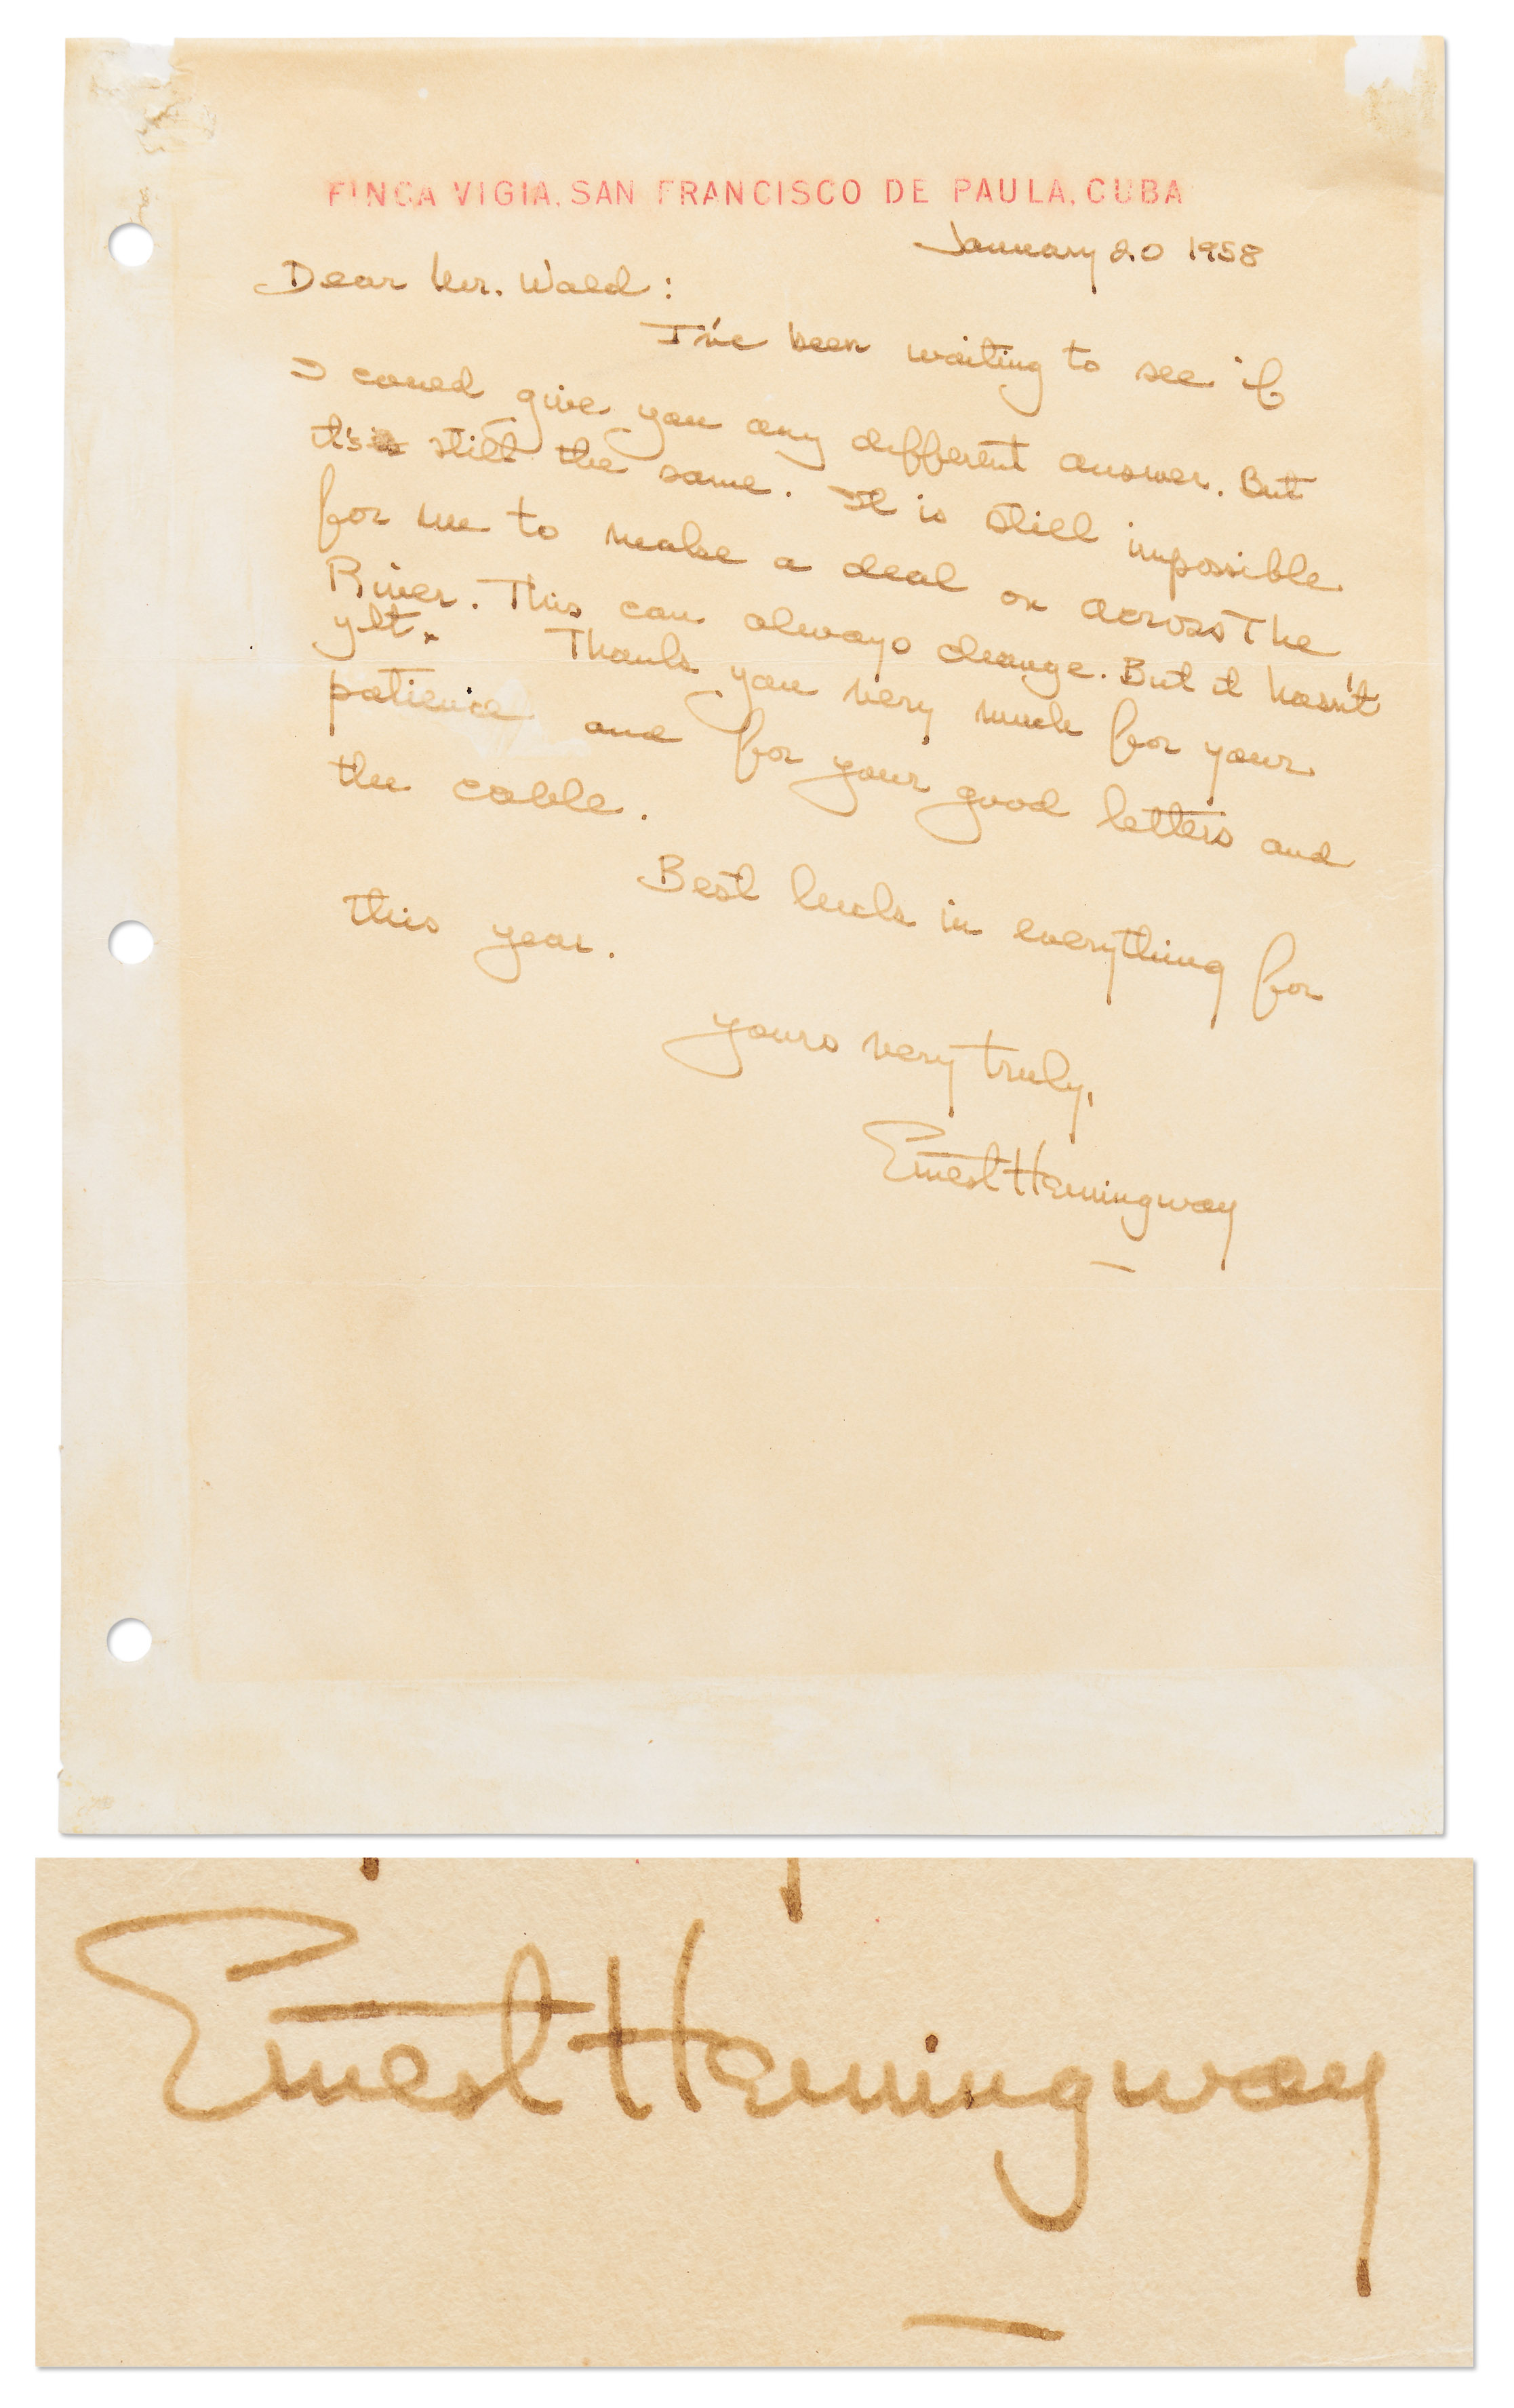 FINCA VIGIA, SAN FRANCISCO DE PAULA, CUBA
January 20 1958
Dear Mr. Wald:
I've been waiting to see if
I could give you any different answer. But
it's still the same. It is still impossible
for me to make a deal on across The
River. This can always change. But it hasn't
yet. Thank you very much for your
patience and for your good letters and
the cable.
Best luck in everything for
this year.
yours very truly,
Ernest Hemingway
Ernest Hemingway